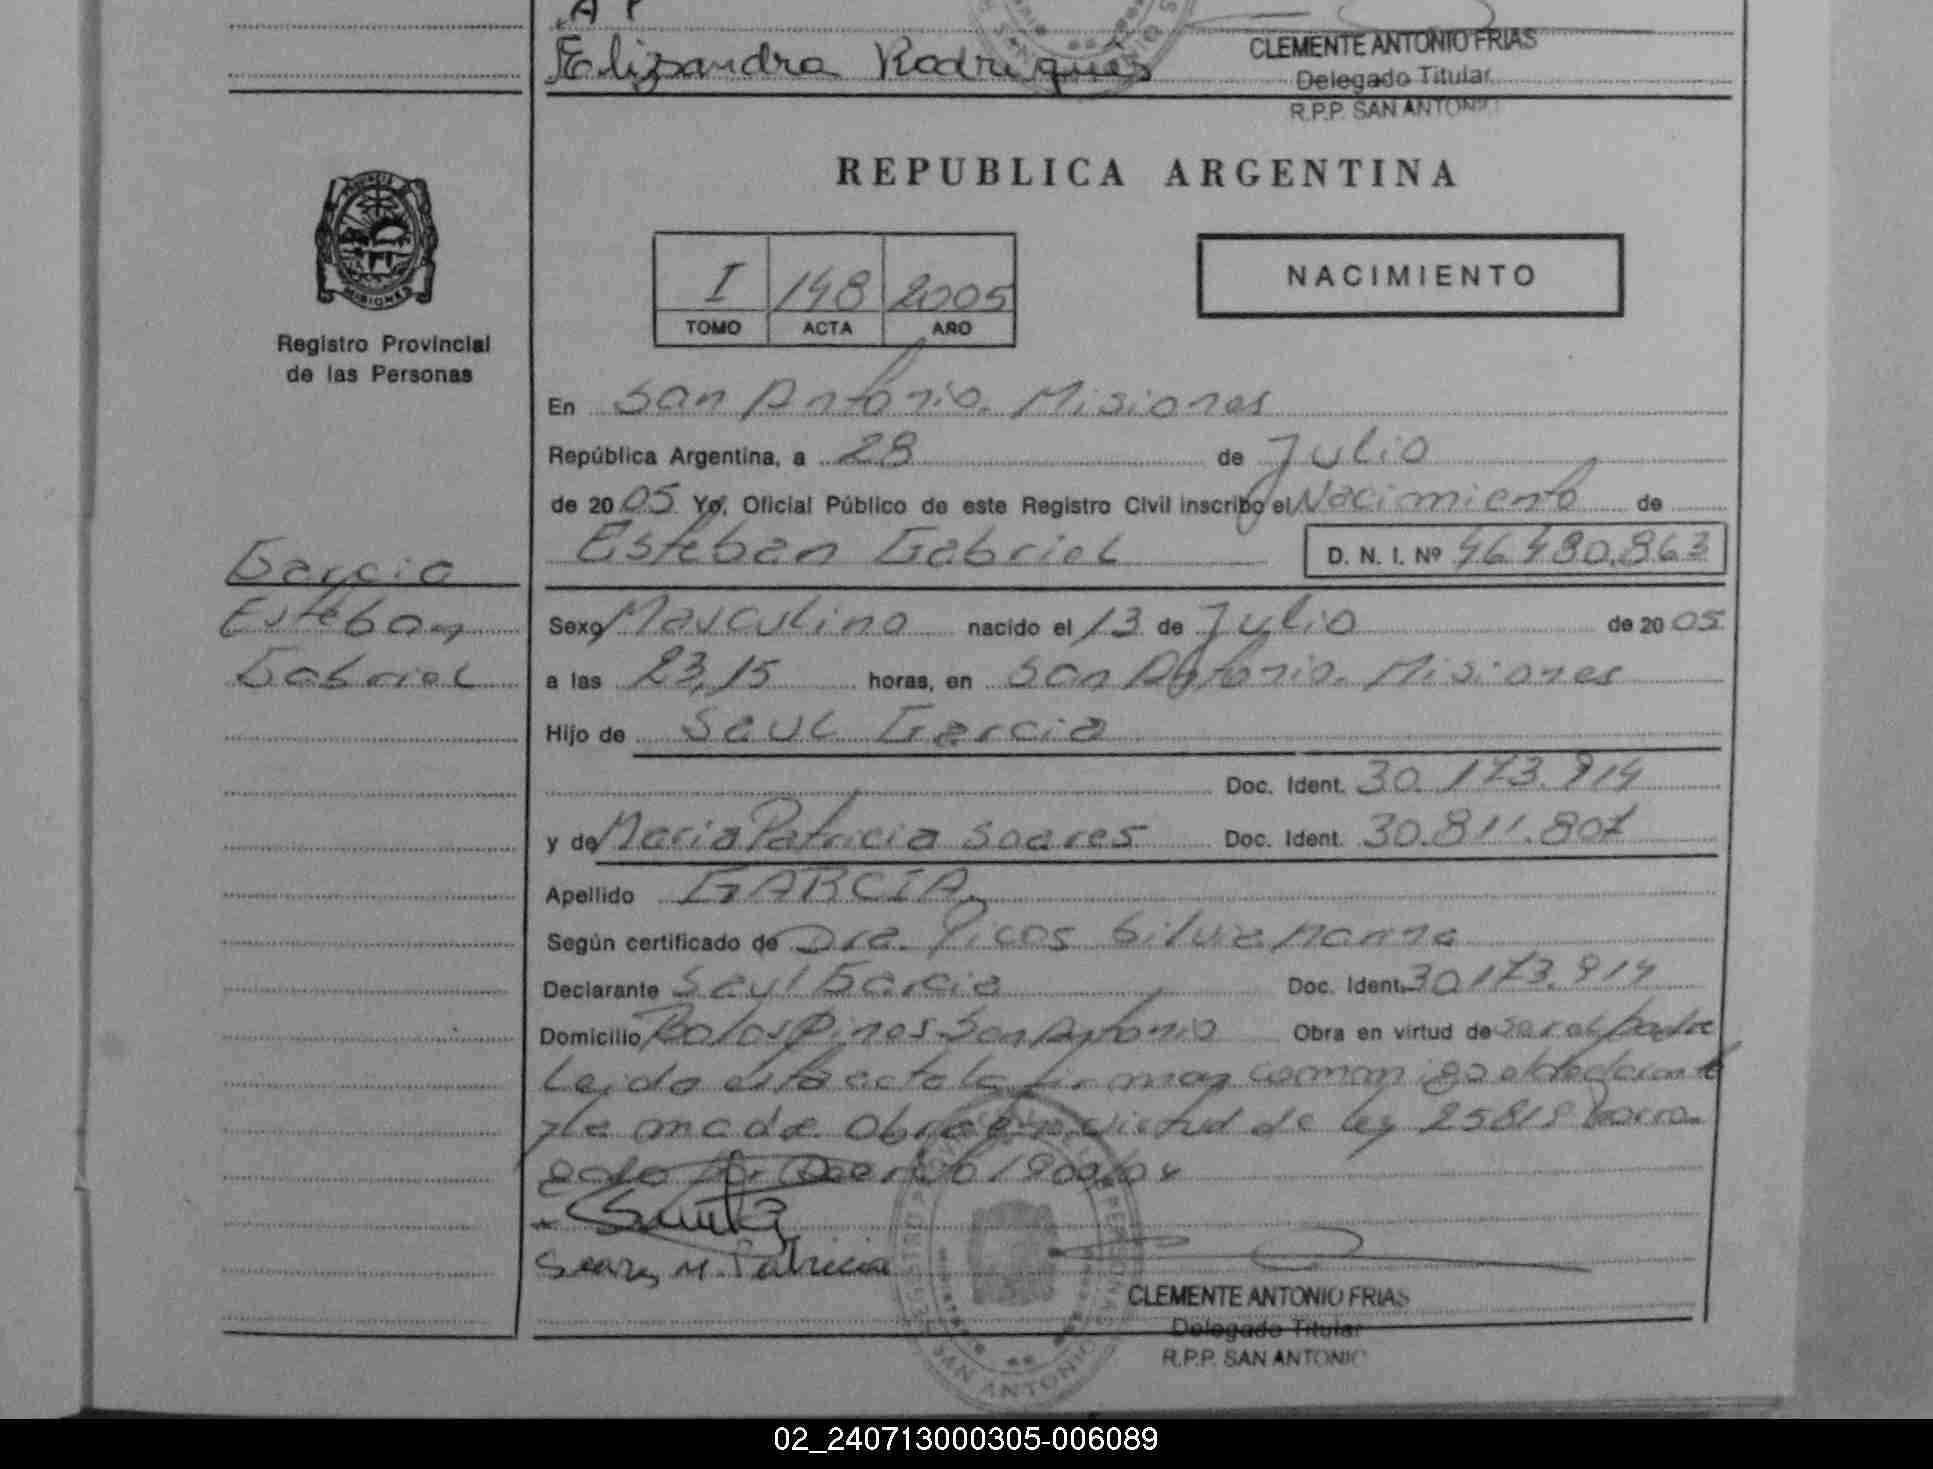 Elizandra Rodrigues
CLEMENTE ANTONIO FRIAS
Delegado Titular
R.P.P. SAN ANTONIO
REPUBLICA ARGENTINA
PROVINCIA DE
MISIONES
Registro Provincial
de las Personas
I 148 2005
TOMO ACTA AÑO
NACIMIENTO
En San Antonio. Misiones
República Argentina, a 28 de Julio
de 2005 Yo, Oficial Público de este Registro Civil inscribo el Nacimiento de
Esteban Gabriel D. N. I. Nº 46.480.863
Garcia
Esteban
Gabriel
Sexo Masculino nacido el 13 de Julio de 2005
a las 23,15 horas, en San Antonio. Misiones
Hijo de Saul Garcia
Doc. Ident. 30.173.914
y de Maria Patricia Soares Doc. Ident. 30.811.807
Apellido GARCIA
Según certificado de Dra. Picos Silvia
Declarante Saul Garcia Doc. Ident. 30.173.914
Domicilio San Antonio Obra en virtud de ser el padre
Leida esta acta la firman conmigo el declarante
y la madre Obra en virtud de ley 25819 prorro
gado por Decreto 1900/04
Soares M. Patricia
SAN ANTONIO
CLEMENTE ANTONIO FRIAS
Delegado Titular
R.P.P. SAN ANTONIO
02_240713000305-006089